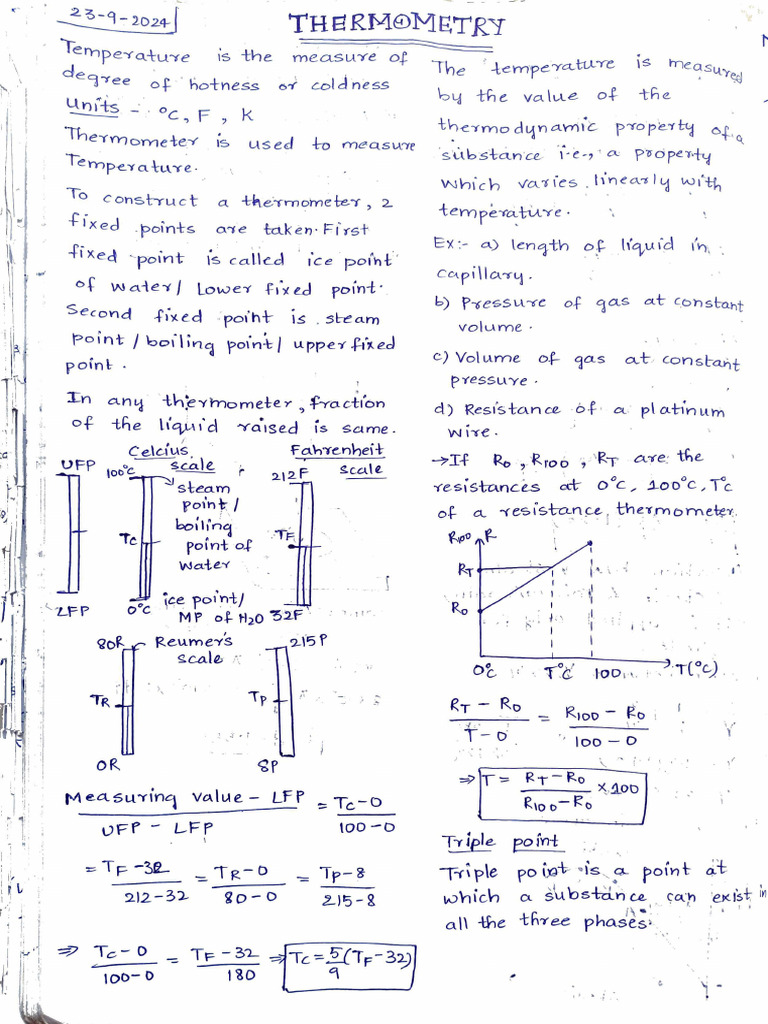 23-9-2024
THERMOMETRY
Temperature is the measure of
degree of hotness or coldness
Units - °C, F, K
Thermometer is used to measure
Temperature.
To construct a thermometer, 2
fixed points are taken. First
fixed point is called ice point
of water/ Lower fixed point.
Second fixed point is steam
point / boiling point/ upper fixed
point.
In any thermometer, fraction
of the liquid raised is same.
UFP
LFP
Celcius scale
100°C
steam
point /
boiling
point of
water
TC
0°C
ice point/
MP of H2O
Fahrenheit scale
212F
TF
32F
80R
Reumer's
scale
TR
0R
215P
TP
8P
Measuring value - LFP / UFP - LFP = TC-0 / 100-0
= TF-32 / 212-32 = TR-0 / 80-0 = TP-8 / 215-8
⇒ TC-0 / 100-0 = TF-32 / 180 ⇒ TC = 5/9 (TF-32)
The temperature is measured
by the value of the
thermodynamic property of a
substance i.e., a property
which varies linearly with
temperature.
Ex:- a) length of liquid in
capillary.
b) Pressure of gas at constant
volume.
c) Volume of gas at constant
pressure.
d) Resistance of a platinum
wire.
→If R0, R100, RT are the
resistances at 0°C, 100°C, T°C
of a resistance thermometer.
R100 R
RT
R0
0°C T°C 100 T(°C)
RT - R0 / T-0 = R100 - R0 / 100-0
⇒ T = RT-R0 / R100-R0 × 100
Triple point
Triple point is a point at
which a substance can exist in
all the three phases.